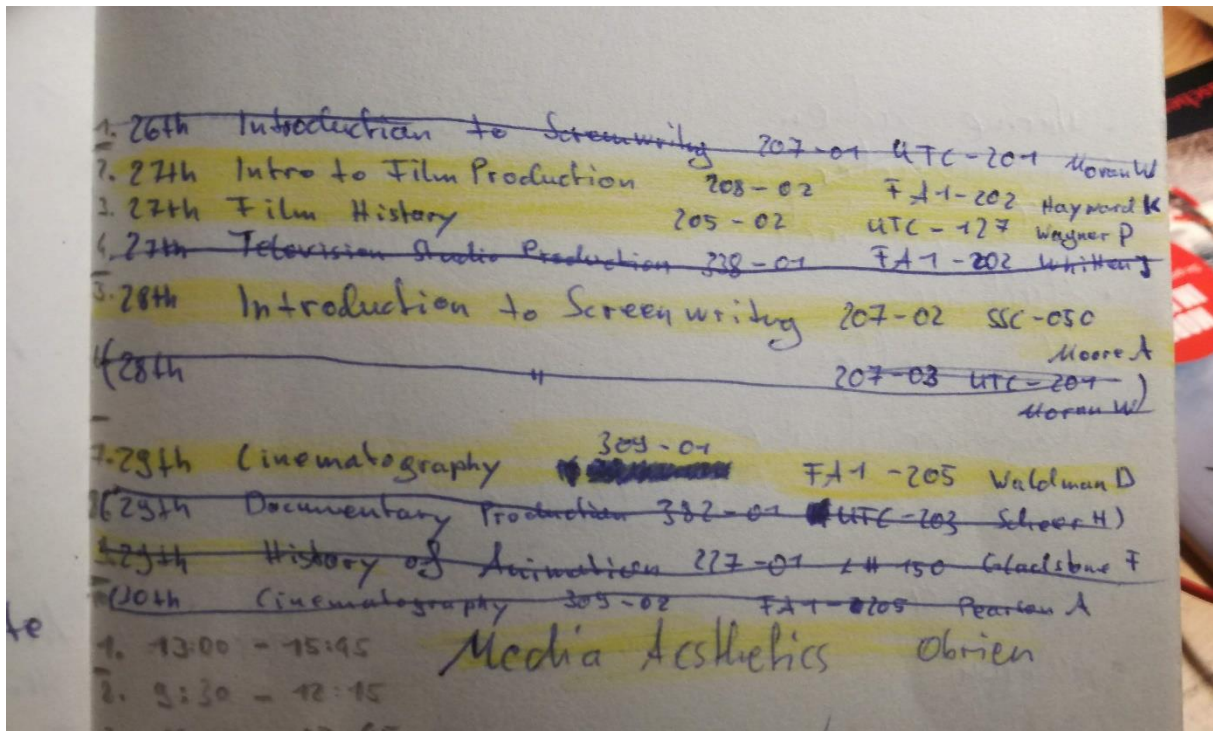 1. 26th Introduction to Screenwritng 207-01 UTC-201 Moran W
2. 27th Intro to Film Production 208-02 FA1-202 Hayward K
3. 27th Film History 205-02 UTC-127 Wagner P
4. 27th Television Studio Production 338-01 FA1-202 Whitten J
5. 28th Introduction to Screenwritng 207-02 SSC-050
Moore A
(28th " 207-03 UTC-201)
Moran W
7. 29th Cinematography 309-01 FA1-205 Waldman D
(29th Documentary Production 382-01 UTC-203 Scheer H)
29th History of Animation 227-01 LH 150 Gladstone F
(30th Cinematography 309-02 FA1-205 Pearson A
1. 13:00 - 15:45 Media Aesthetics Obrien
2. 9:30 - 12:15
te